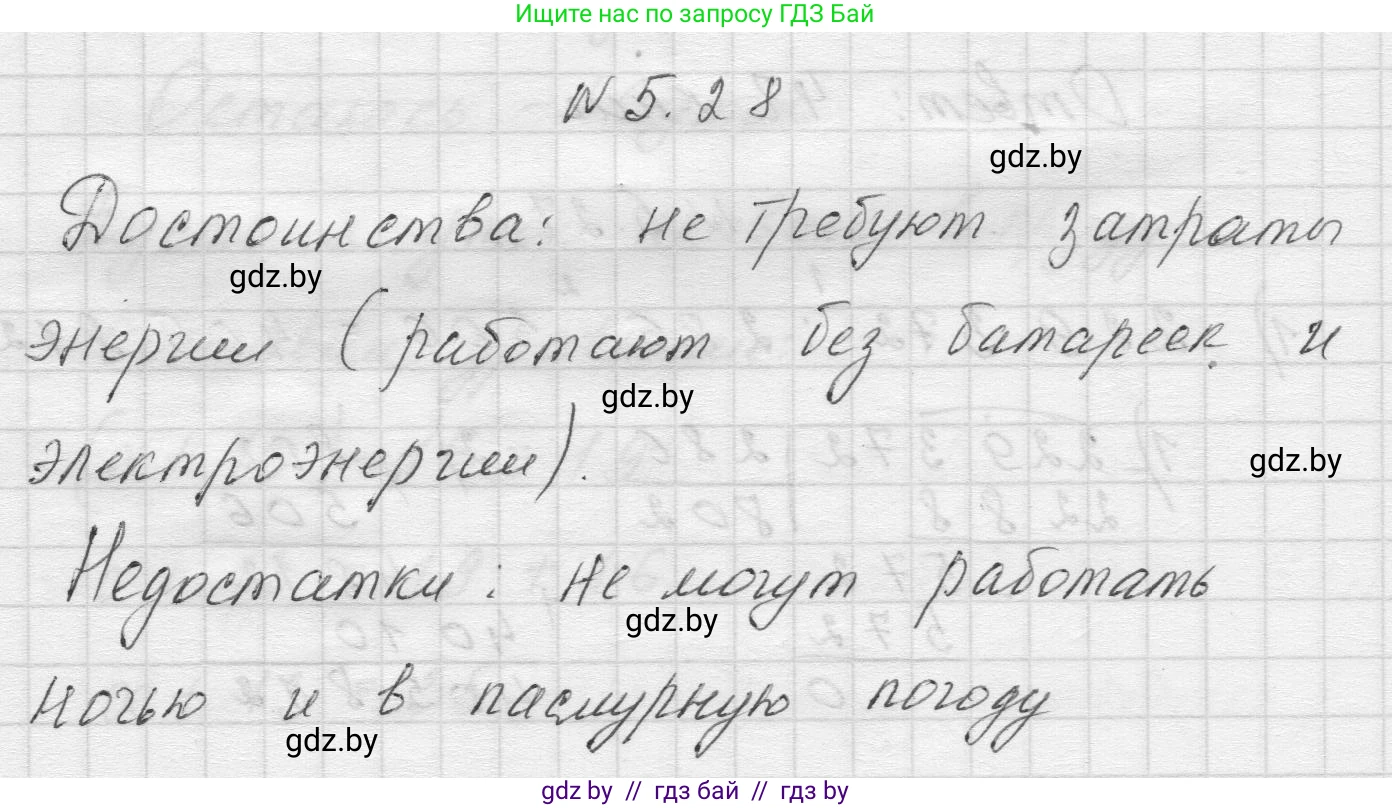 Ищите нас по запросу ГДЗ Бай
N 5.28
gdz.by
Достоинства: не требуют затраты
gdz.by
энергии (работают без батареек и
gdz.by
электроэнергии).
gdz.by
Недостатки: не могут работать
gdz.by
ночью и в пасмурную погоду
gdz.by
gdz by // гдз бай // гдз by